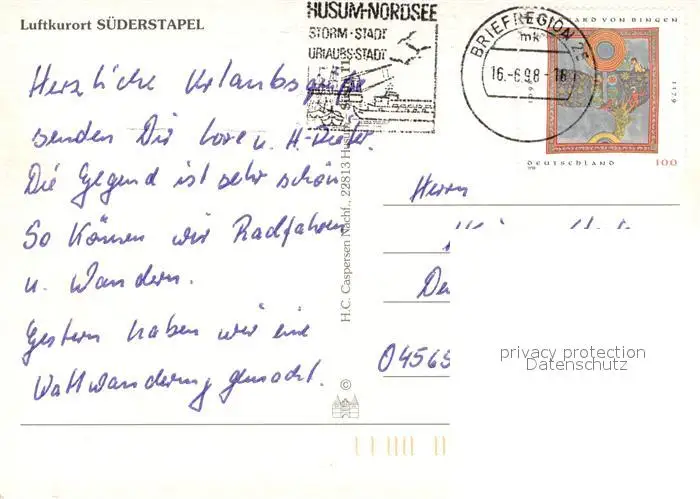 Luftkurort SÜDERSTAPEL
HUSUM-NORDSEE
STORM-STADT
URLAUBS-STADT
BRIEFREGION 25
mk
16.-6.98-18
ARD VON BINGEN
1179
DEUTSCHLAND
100
Herzliche Urlaubsgrüße
senden Dir Lore u. H-Dieter.
Die Gegend ist sehr schön
So können wir Radfahren
u. Wandern.
Gestern haben wir eine
Wattwanderung gemacht.
H.C. Caspersen Nachf., 22813 Husum
©
Herrn
04565
privacy protection
Datenschutz